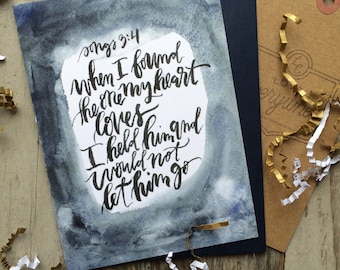 songs 3:4
when I found
the one my heart
loves
I held him and
would not
let him go